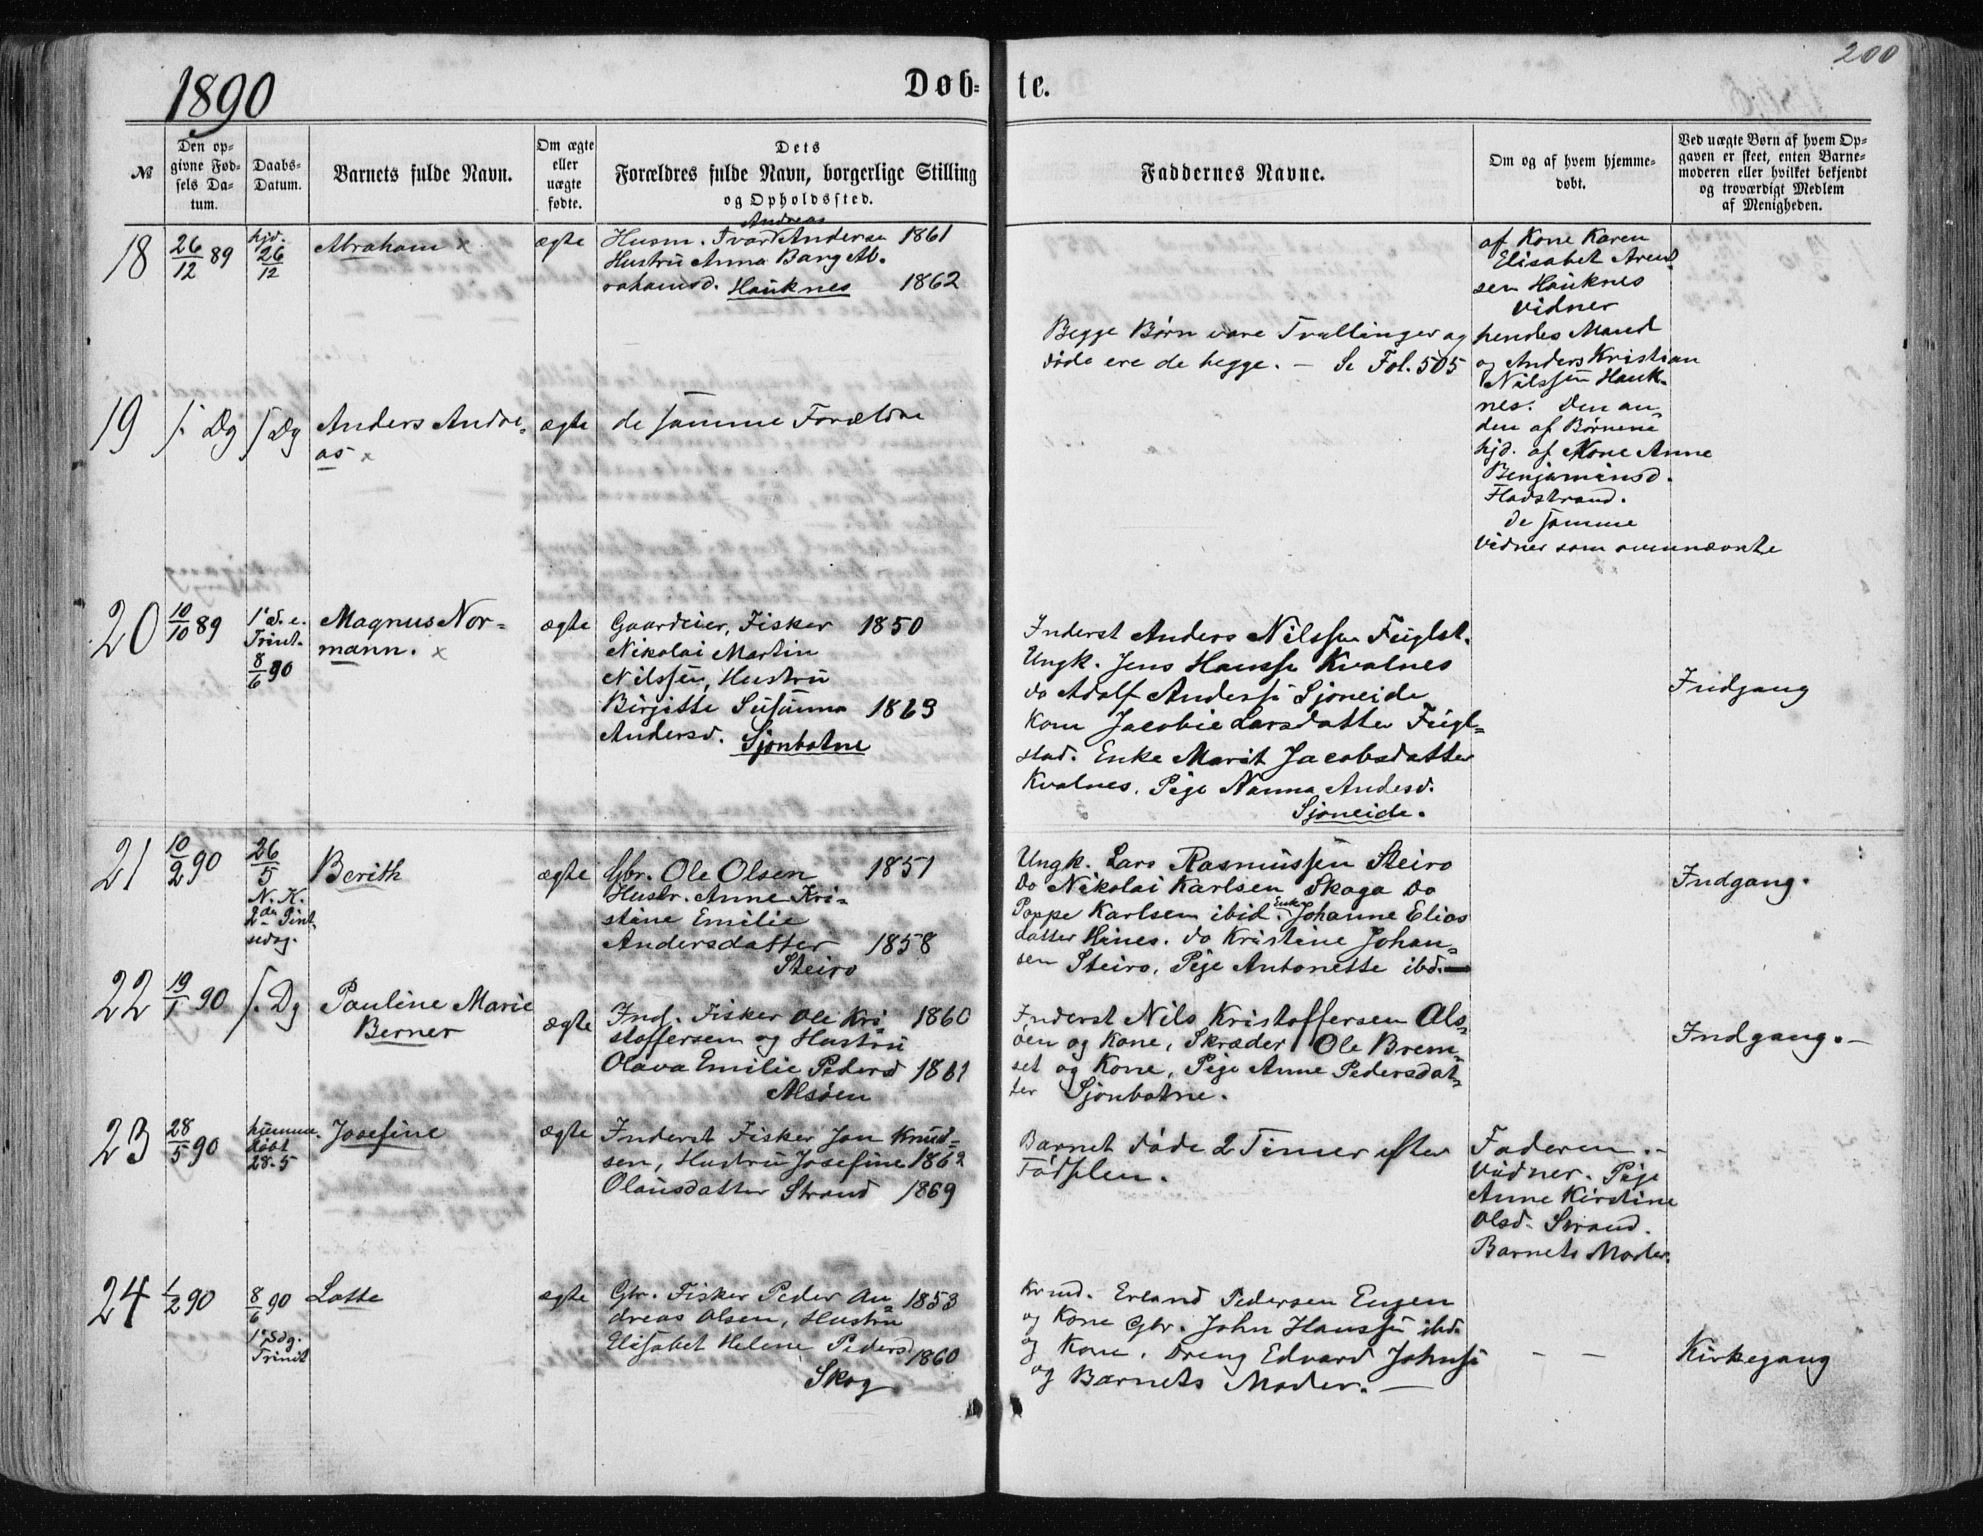 200
1890
Døb-
te.
№
Den op-
givne Fød-
sels Da-
tum.
Daabs-
Datum.
Barnets fulde Navn.
Om ægte
eller
uægte
fødte.
Dets
Forældres fulde Navn, borgerlige Stilling
og Opholdssted.
Faddernes Navne.
Om og af hvem hjemme-
døbt.
Ved uægte Børn af hvem Op-
gaven er skeet, enten Barne-
moderen eller hvilket bekjendt
og troværdigt Medlem
af Menigheden.
18
26/12 89
hjd.
26/12
Abraham x
ægte
Andreas
Husm. Ivar Anderse 1861
Hustru Anna Bang Ab-
rahamsd. Hauknes 1862
Begge Børn vare Tvillinger og
døde ere de begge. — Se Fol. 505
af Kone Karen
Elisabet Arent
sen Hauknes
Vidner
hendes Mand
og Anders Kristian
Nilssen Hauk-
nes. Den an-
den af Børnene
hjd. af Kone Anne
Benjaminsd.
Flodstrand.
de samme
Vidner som ovennævnte
19
s. Dg
s Dg
Anders Andre-
as x
ægte
de samme Forældre
20
10/10 89
1' S. e.
Trinit.
8/6 90
Magnus Nor-
mann. x
ægte
Gaardeier, Fisker 1850
Nikolai Martin
Nilssen, Hustru
Birgitte Susanna 1863
Andersd. Sjonbotne
Inderst Anders Nilssen Fuglst.
Ungk. Jens Hansse Kvalnes
do Adolf Anderse Sjoneide
Kone Jacobie Larsdatter Fugl-
stad. Enke Marit Jacobsdatter
Kvalnes. Pige Nanna Andersd.
Sjoneide.
Indgang
21
10/2 90
26/5
N. K.
2den Pint
sedag.
Berith
ægte
Gbr. Ole Olsen 1851
Hustr. Anne Kri-
stine Emilie
Andersdatter 1858
Steiro
Ungk. Lars Rasmussen Steiro
do Nikolai Karlsen Skoga do
Poppe Karlsen ibid. Enke Johanne Elias
datter Hines. do Kristine Johan-
sen Steiro, Pige Antonette ibd.—
Indgang.
22
19/1 90
s. Dg
Pauline Marie
Berner
ægte
Ind. Fisker Ole Kri- 1860
stoffersen og Hustru
Olava Emilie Pedersd 1861
Alsøen
Inderst Nils Kristoffersen Als-
øen og Kone, Skræder Ole Brem-
set og Kone, Pige Anne Pedersdat-
ter Sjonbotne.
Indgang.—
23
28/5 90
hjemme.
døbt
28-5
Josefine
ægte
Inderst Fisker Jon Knud-
sen, Hustru Josefine 1862
Olausdatter Strand 1869
Barnet døde 2 Timer efter
Fødselen.
Faderen.—
Vidner. Pige
Anne Kirstine
Olsd. Strand.
Barnets Moder.
24
1/2 90
8/6 90
1' Sdg.
Trinit
Lotte
ægte
Gbr. Fisker Peder An- 1853
dreas Olsen, Hustru
Elisabet Helene Pedersd
1860
Skog
Kvmd. Erland Pedersen Engen
og Kone Gbr. John Hanssen ibd.
og Kone. Dreng Edvard Johnse
og Barnets Moder. —
— —
Kirkegang